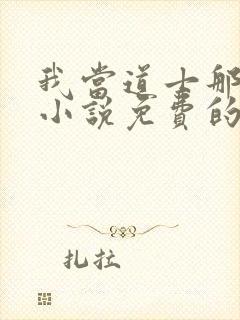 我當道士那
小說免費的
扎拉